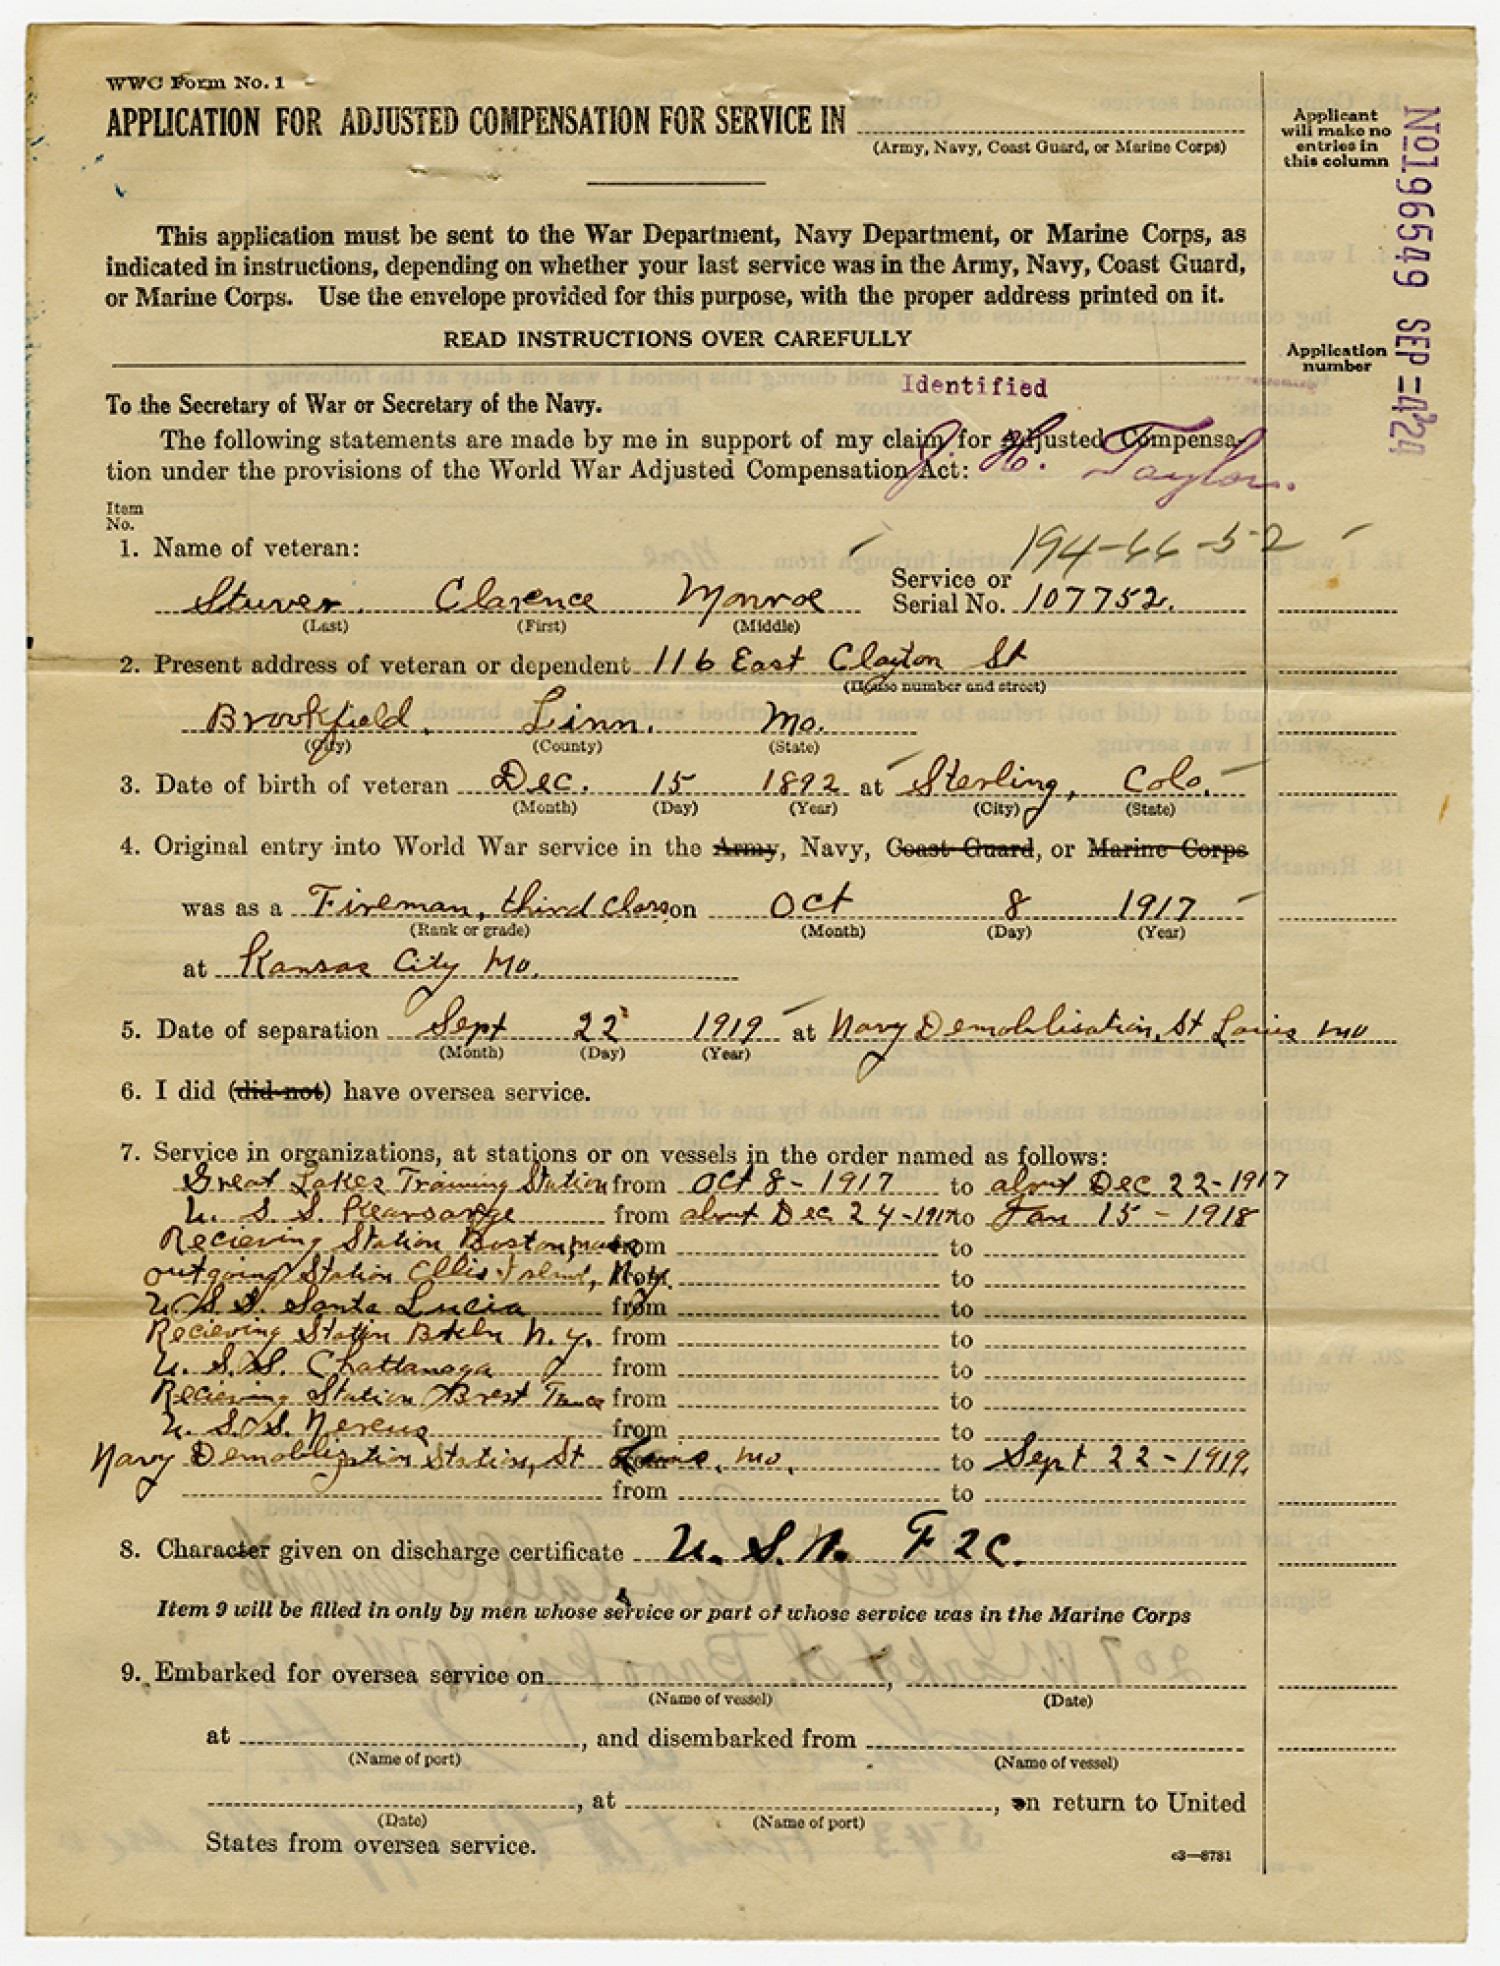 WWC Form No. 1
APPLICATION FOR ADJUSTED COMPENSATION FOR SERVICE IN
(Army, Navy, Coast Guard, or Marine Corps)
Applicant
will make no
entries in
this column
No196549 SEP-4'24
This application must be sent to the War Department, Navy Department, or Marine Corps, as
indicated in instructions, depending on whether your last service was in the Army, Navy, Coast Guard,
or Marine Corps. Use the envelope provided for this purpose, with the proper address printed on it.
READ INSTRUCTIONS OVER CAREFULLY
Application
number
Identified
To the Secretary of War or Secretary of the Navy.
J. H. Taylor.
The following statements are made by me in support of my claim for Adjusted Compensa-
tion under the provisions of the World War Adjusted Compensation Act:
Item
No.
1. Name of veteran:
194-66-52
Stuver, Clarence Monroe Service or Serial No. 107752.
(Last) (First) (Middle)
2. Present address of veteran or dependent 116 East Clayton St
(House number and street)
Brookfield, Linn, Mo.
(City) (County) (State)
3. Date of birth of veteran Dec. 15 1892 at Sterling, Colo.
(Month) (Day) (Year) (City) (State)
4. Original entry into World War service in the Army, Navy, Coast Guard, or Marine Corps
was as a Fireman, third class on Oct 8 1917
(Rank or grade) (Month) (Day) (Year)
at Kansas City Mo.
5. Date of separation Sept 22 1919 at Navy Demobilisation, St Louis Mo
(Month) (Day) (Year)
6. I did (did not) have oversea service.
7. Service in organizations, at stations or on vessels in the order named as follows:
Great Lakes Training Station from Oct 8 - 1917 to about Dec 22-1917
U. S. S. Kearsarge from about Dec 24-1917 to Jan 15 - 1918
Recieving Station Boston, Mass from to
Outgoing Station Ellis Island, N.Y. from to
U. S. S. Santa Lucia from to
Recieving Station Bkln N. Y. from to
U. S. S. Chattanoga from to
Recieving Station Brest France from to
U. S. S. Nereus from to
Navy Demobilization Station, St Louis, Mo. from to Sept 22-1919.
from to
8. Character given on discharge certificate U. S. N. F2C.
Item 9 will be filled in only by men whose service or part of whose service was in the Marine Corps
9. Embarked for oversea service on ,
(Name of vessel) (Date)
at , and disembarked from
(Name of port) (Name of vessel)
, at , on return to United
(Date) (Name of port)
States from oversea service.
c3—8781